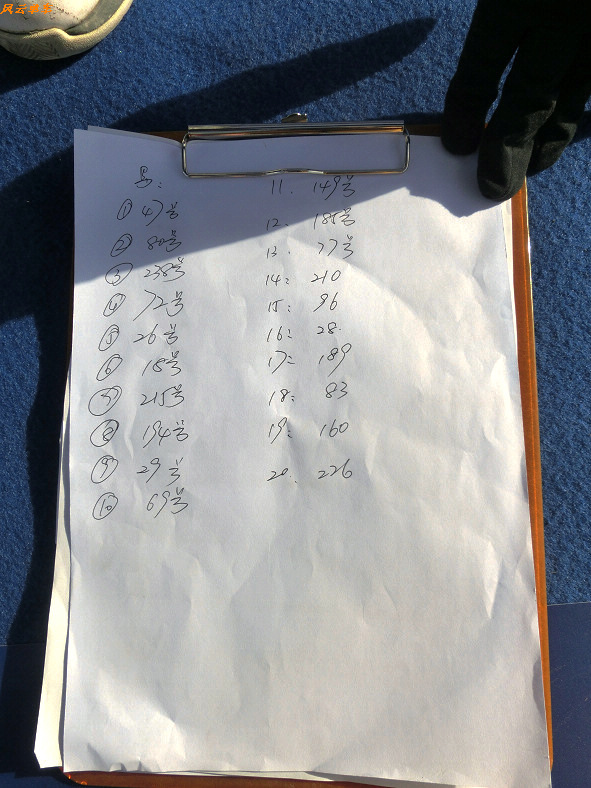 男:
① 47号
② 80号
③ 238号
④ 72号
⑤ 26号
⑥ 18号
⑦ 215号
⑧ 194号
⑨ 29号
⑩ 69号
11. 149号
12. 185号
13. 77号
14: 210
15: 96
16: 28.
17: 189
18: 83
19: 160
20. 226